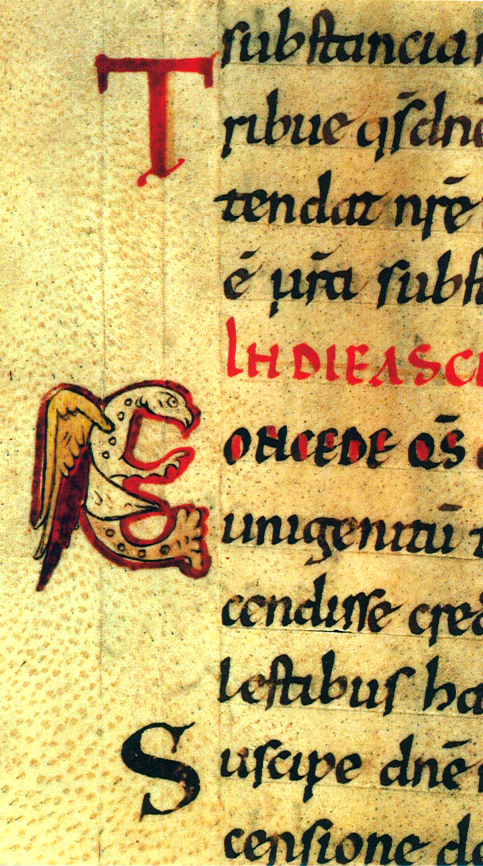 substancia
Tribue qs̄ dnē
tendat nr̄e
ē ur̄a subst
IN DIE ASCE
CONCEDE QS̄
unigenitū
cendisse cred
lestibus ha
Suscipe dnē
censione do